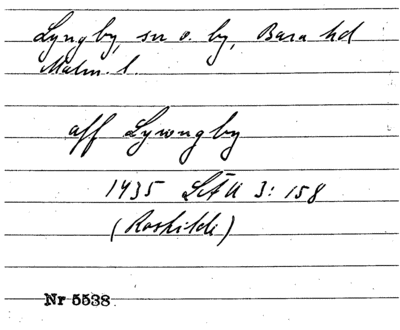 Lyngby, sn o. by, Bara hd
Malm. l.
aff Lywngby
1435 LÄU 3: 158
(Roskilde)
Nr 5538